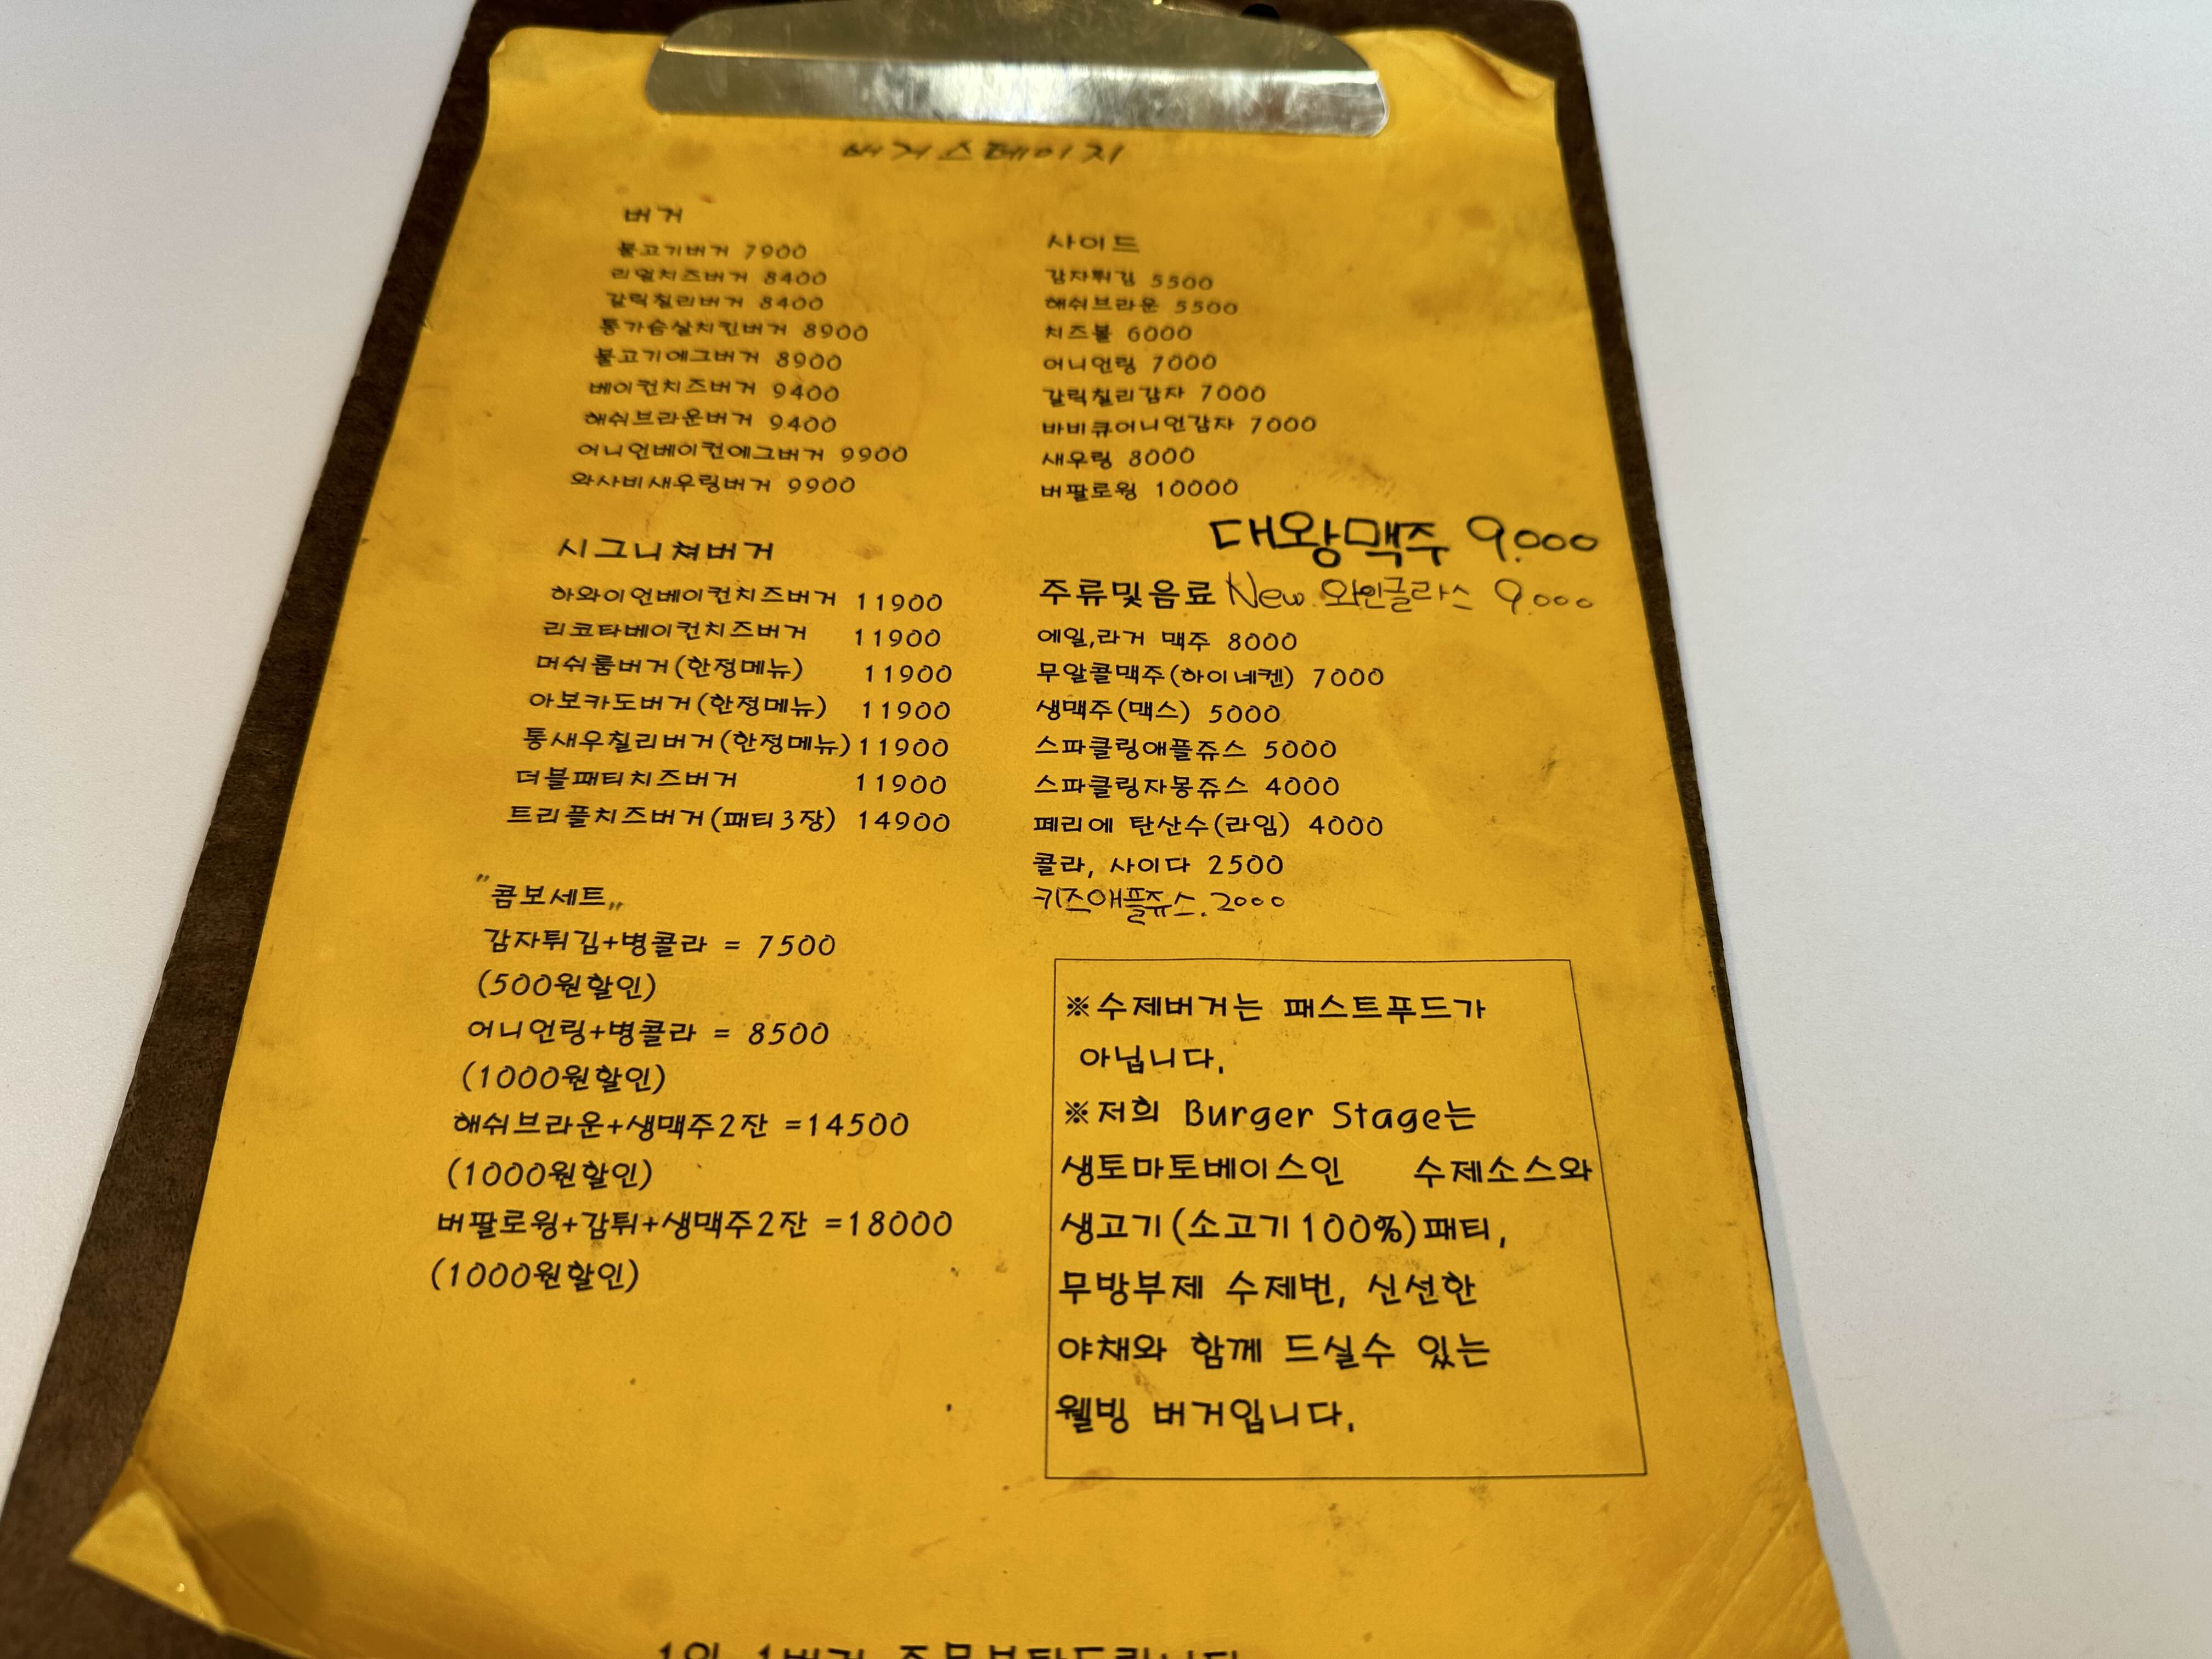 버거스테이지
버거
불고기버거 7900
리얼치즈버거 8400
갈릭칠리버거 8400
통가슴살치킨버거 8900
불고기에그버거 8900
베이컨치즈버거 9400
해쉬브라운버거 9400
어니언베이컨에그버거 9900
와사비새우링버거 9900
시그니쳐버거
하와이언베이컨치즈버거 11900
리코타베이컨치즈버거 11900
머쉬룸버거(한정메뉴) 11900
아보카도버거(한정메뉴) 11900
통새우칠리버거(한정메뉴) 11900
더블패티치즈버거 11900
트리플치즈버거(패티3장) 14900
"콤보세트„
감자튀김+병콜라 = 7500
(500원할인)
어니언링+병콜라 = 8500
(1000원할인)
해쉬브라운+생맥주2잔 =14500
(1000원할인)
버팔로윙+감튀+생맥주2잔 =18000
(1000원할인)
사이드
감자튀김 5500
해쉬브라운 5500
치즈볼 6000
어니언링 7000
갈릭칠리감자 7000
바비큐어니언감자 7000
새우링 8000
버팔로윙 10000
대왕맥주 9.000
주류및음료 New 와인글라스 9.000
에일,라거 맥주 8000
무알콜맥주(하이네켄) 7000
생맥주(맥스) 5000
스파클링애플쥬스 5000
스파클링자몽쥬스 4000
페리에 탄산수(라임) 4000
콜라, 사이다 2500
키즈애플쥬스. 2000
※수제버거는 패스트푸드가
아닙니다.
※저희 Burger Stage는
생토마토베이스인 수제소스와
생고기(소고기100%)패티,
무방부제 수제번, 신선한
야채와 함께 드실수 있는
웰빙 버거입니다.
1인 1버거 주문부탁드립니다